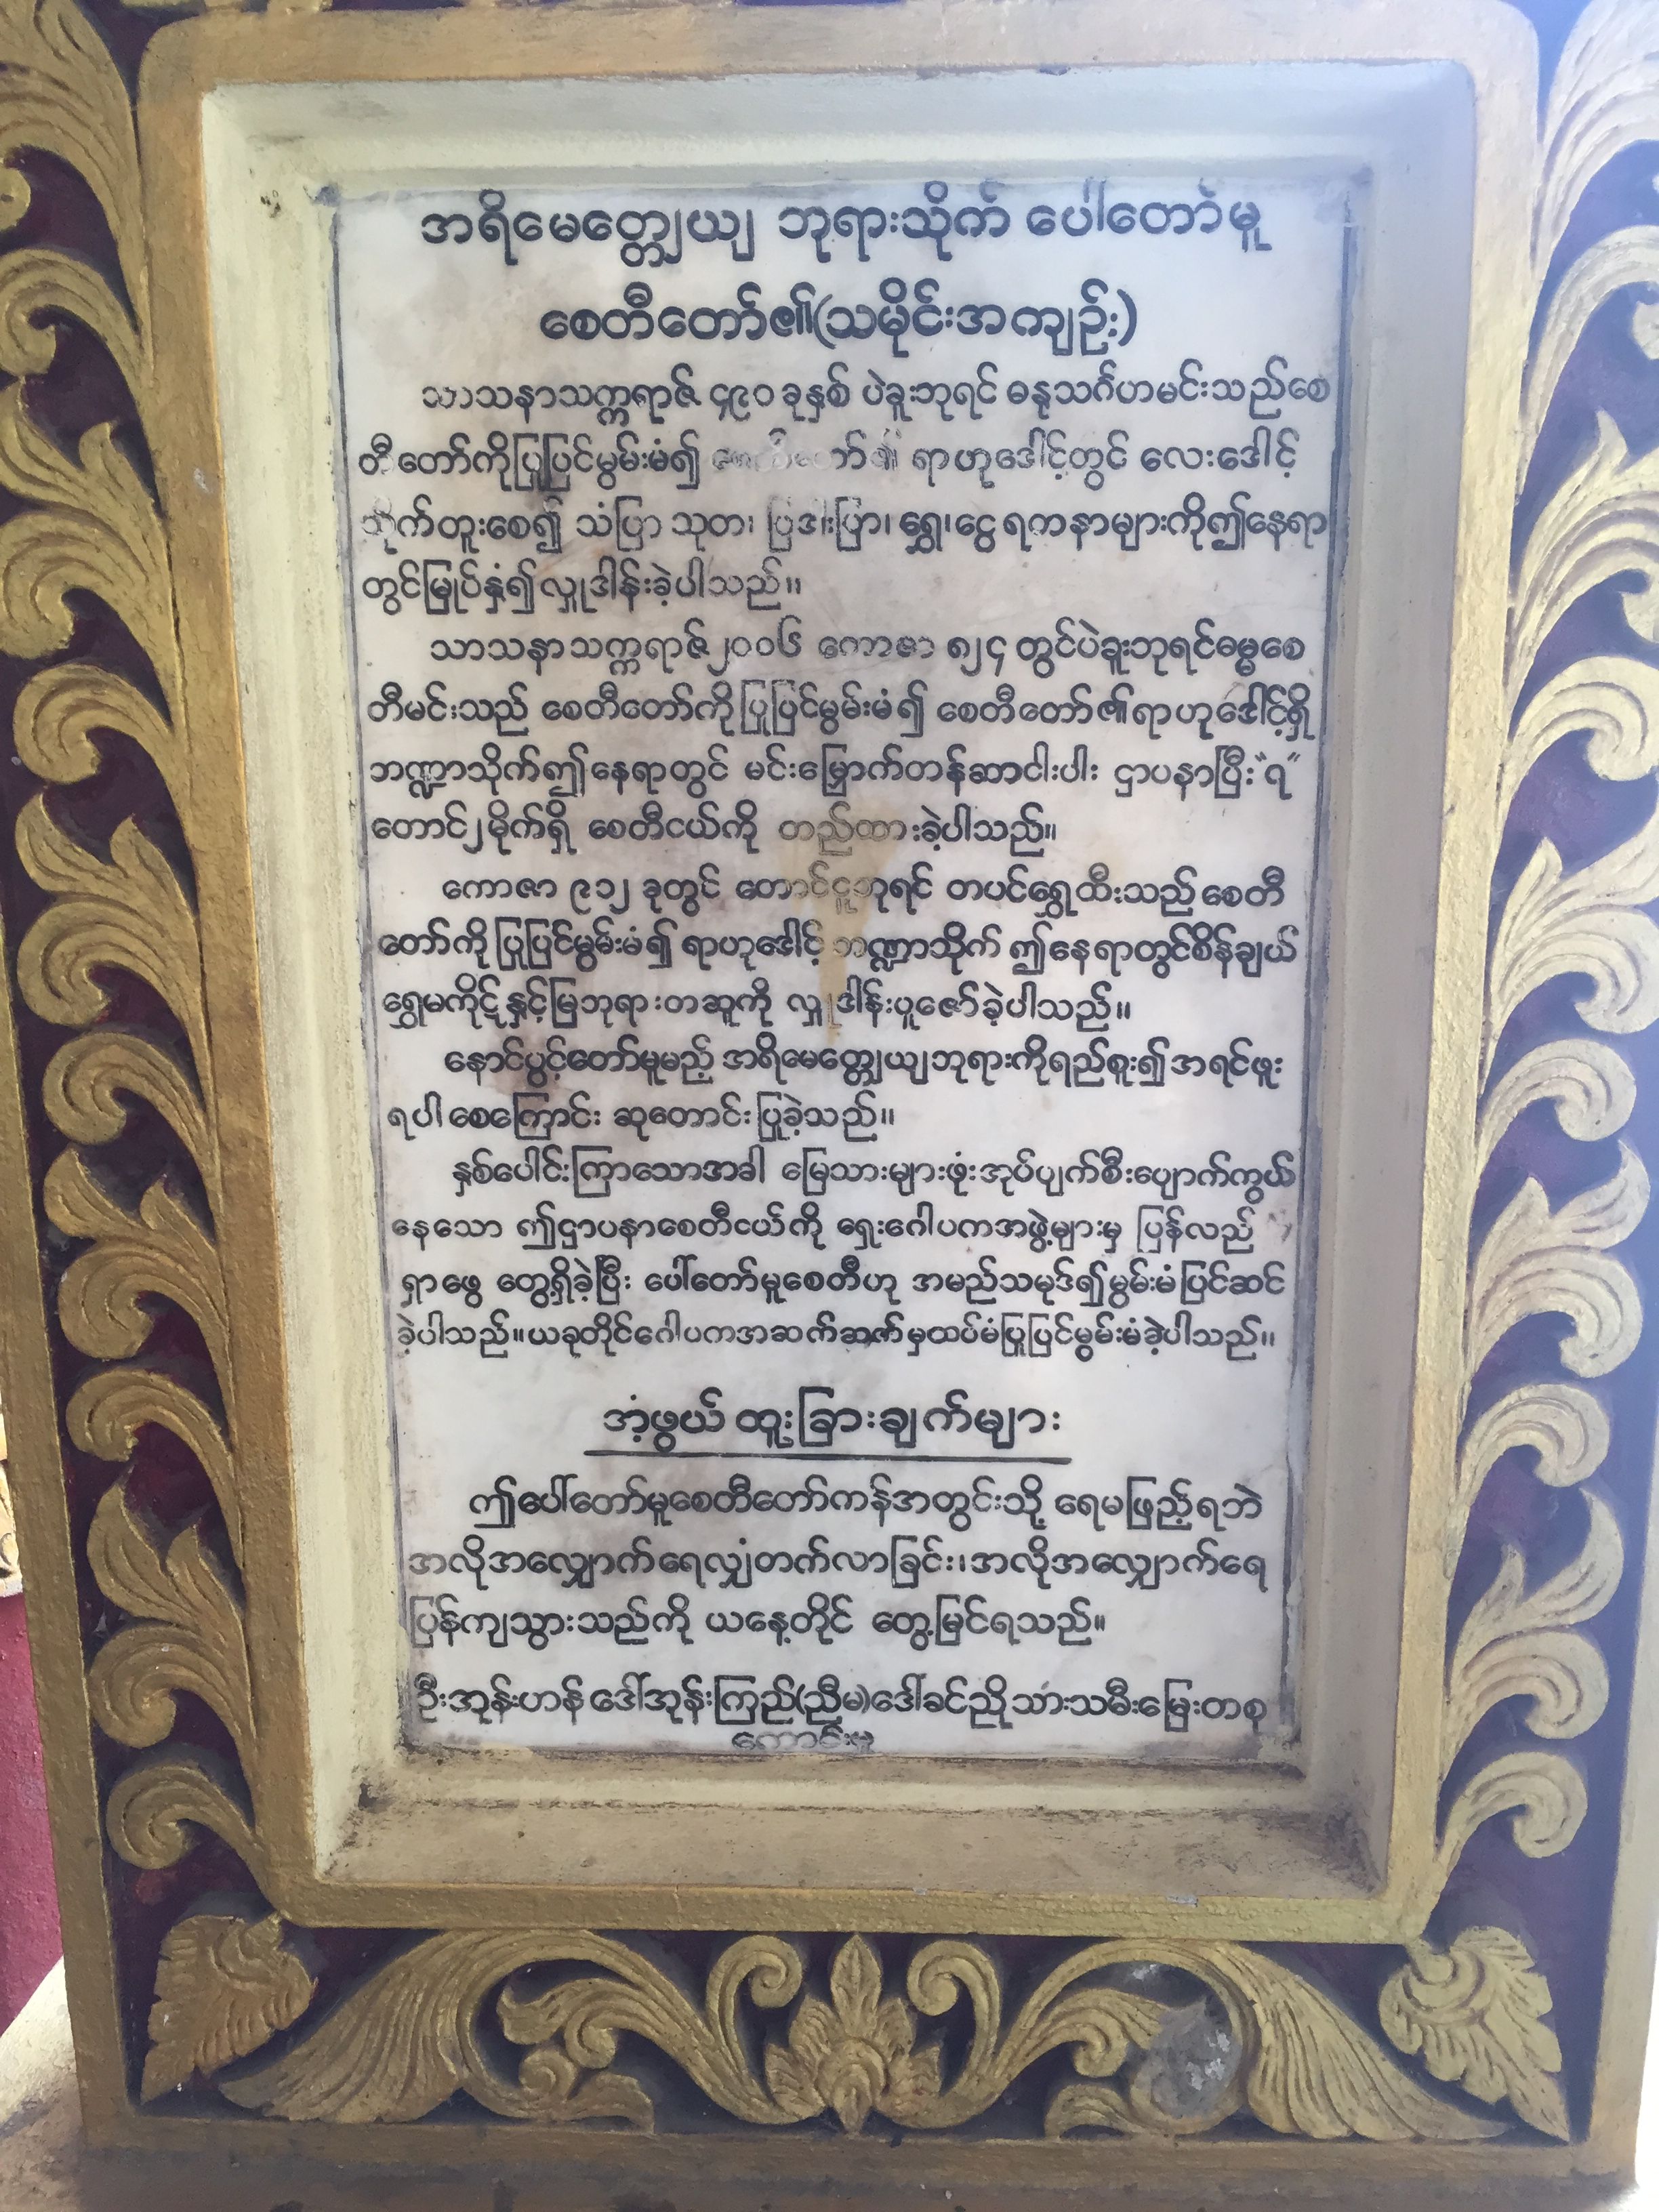 အရိမေတ္တေယျ ဘုရားသိုက် ပေါ်တော်မူ
စေတီတော်၏(သမိုင်းအကျဉ်း)
သာသနာသက္ကရာဇ် ၄၉၀ ခုနှစ် ပဲခူးဘုရင် ဓနုသင်္ဂဟမင်းသည်စေ
တီတော်ကိုပြုပြင်မွမ်းမံ၍ ရာဟုဒေါင့်တွင် လေးဒေါင့်
သိုက်တူးစေ၍ သံပြာ သုတ၊ ပြဒါးပြာ၊ ရွှေ၊ငွေ ရကနာများကိုဤနေရာ
တွင်မြှုပ်နှံ၍လှူဒါန်းခဲ့ပါသည်။
သာသနာသက္ကရာဇ်၂၀၀၆ ကောဇာ ၈၂၄ တွင်ပဲခူးဘုရင်ဓမ္မစေ
တီမင်းသည် စေတီတော်ကိုပြုပြင်မွမ်းမံ၍ စေတီတော်၏ရာဟုဒေါင့်ရှိ
ဘဏ္ဍာသိုက်ဤနေရာတွင် မင်းမြှောက်တန်ဆာငါးပါး ဌာပနာပြီး"၇"
တောင်၂မိုက်ရှိ စေတီငယ်ကို တည်ထားခဲ့ပါသည်။
ကောဇာ ၉၁၂ ခုတွင် တောင်ငူဘုရင် တပင်ရွှေထီးသည်စေတီ
တော်ကို ပြုပြင်မွမ်းမံ၍ ရာဟုဒေါင့် ဘဏ္ဍာသိုက် ဤနေရာတွင်စိန်ချယ်
ရွှေမကိုဋ်နှင့်မြဘုရားတဆူကို လှူဒါန်းပူဇော်ခဲ့ပါသည်။
နောင်ပွင့်တော်မူမည့် အရိမေတ္တေယျဘုရားကိုရည်စူး၍အရင်ဖူး
ရပါစေကြောင်း ဆုတောင်းပြုခဲ့သည်။
နှစ်ပေါင်းကြာသောအခါ မြေသားများဖုံးအုပ်ပျက်စီးပျောက်ကွယ်
နေသော ဤဌာပနာစေတီငယ်ကို ရှေးဂေါပကအဖွဲ့များမှ ပြန်လည်
ရှာဖွေ တွေ့ရှိခဲ့ပြီး ပေါ်တော်မူစေတီဟု အမည်သမုဒ်၍မွမ်းမံပြင်ဆင်
ခဲ့ပါသည်။ယခုတိုင်ဂေါပကအဆက်ဆက်မှထပ်မံပြုပြင်မွမ်းမံခဲ့ပါသည်။
အံ့ဖွယ် ထူးခြားချက်များ
ဤပေါ်တော်မူစေတီတော်ကန်အတွင်းသို့ ရေမဖြည့်ရဘဲ
အလိုအလျှောက်ရေလျှံတက်လာခြင်း၊အလိုအလျှောက်ရေ
ပြန်ကျသွားသည်ကို ယနေ့တိုင် တွေ့မြင်ရသည်။
ဦးအုန်းဟန် ဒေါ်အုန်းကြည်(ညီမ)ဒေါ်ခင်ညို သားသမီးမြေးတစု
ကောင်းမှု